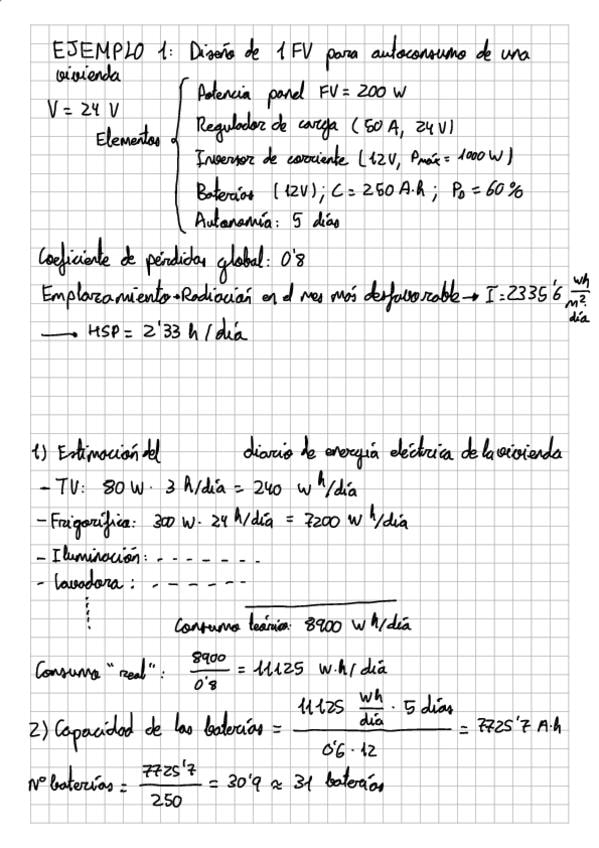 EJEMPLO 1: Diseño de 1 FV para autoconsumo de una
vivienda
V = 24 V
Elementos
Potencia panel FV = 200 W
Regulador de carga (50 A, 24 V)
Inversor de corriente (12V, Pmáx = 1000 W)
Baterías (12V); C = 250 A·h; PD = 60%
Autonomía: 5 días
Coeficiente de pérdidas global: 0'8
Emplazamiento → Radiación en el mes más desfavorable → I = 2335'6 wh/m²·día
→ HSP = 2'33 h/día
1) Estimación del diario de energía eléctrica de la vivienda
- TV: 80 W · 3 h/día = 240 w h/día
- Frigorífico: 300 W · 24 h/día = 7200 w h/día
- Iluminación: - - - - - - -
- Lavadora: - - - - - -
Consumo teórico: 8900 w h/día
Consumo "real": 8900/0'8 = 11125 w·h/día
2) Capacidad de las baterías = (11125 wh/día · 5 días)/(0'6 · 12) = 7725'7 A·h
Nº baterías = 7725'7/250 = 30'9 ≈ 31 baterías